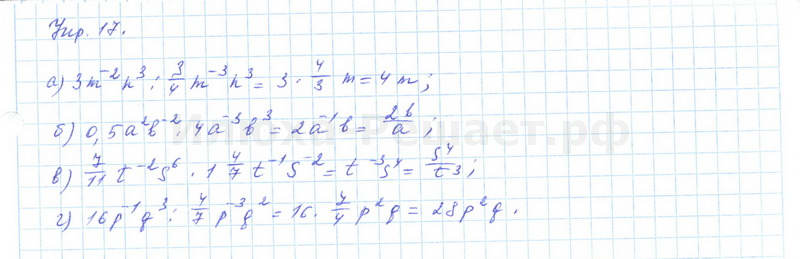 Упр. 17.
а) 3m⁻²n³ : 3/4 m⁻³n³ = 3 · 4/3 m = 4m;
б) 0,5a²b⁻² · 4a⁻³b³ = 2a⁻¹b = 2b/a;
в) 7/11 t⁻²s⁶ · 1 4/7 t⁻¹s⁻² = t⁻³s⁴ = s⁴/t³;
г) 16p⁻¹q³ : 4/7 p⁻³q² = 16 · 7/4 p²q = 28p²q.